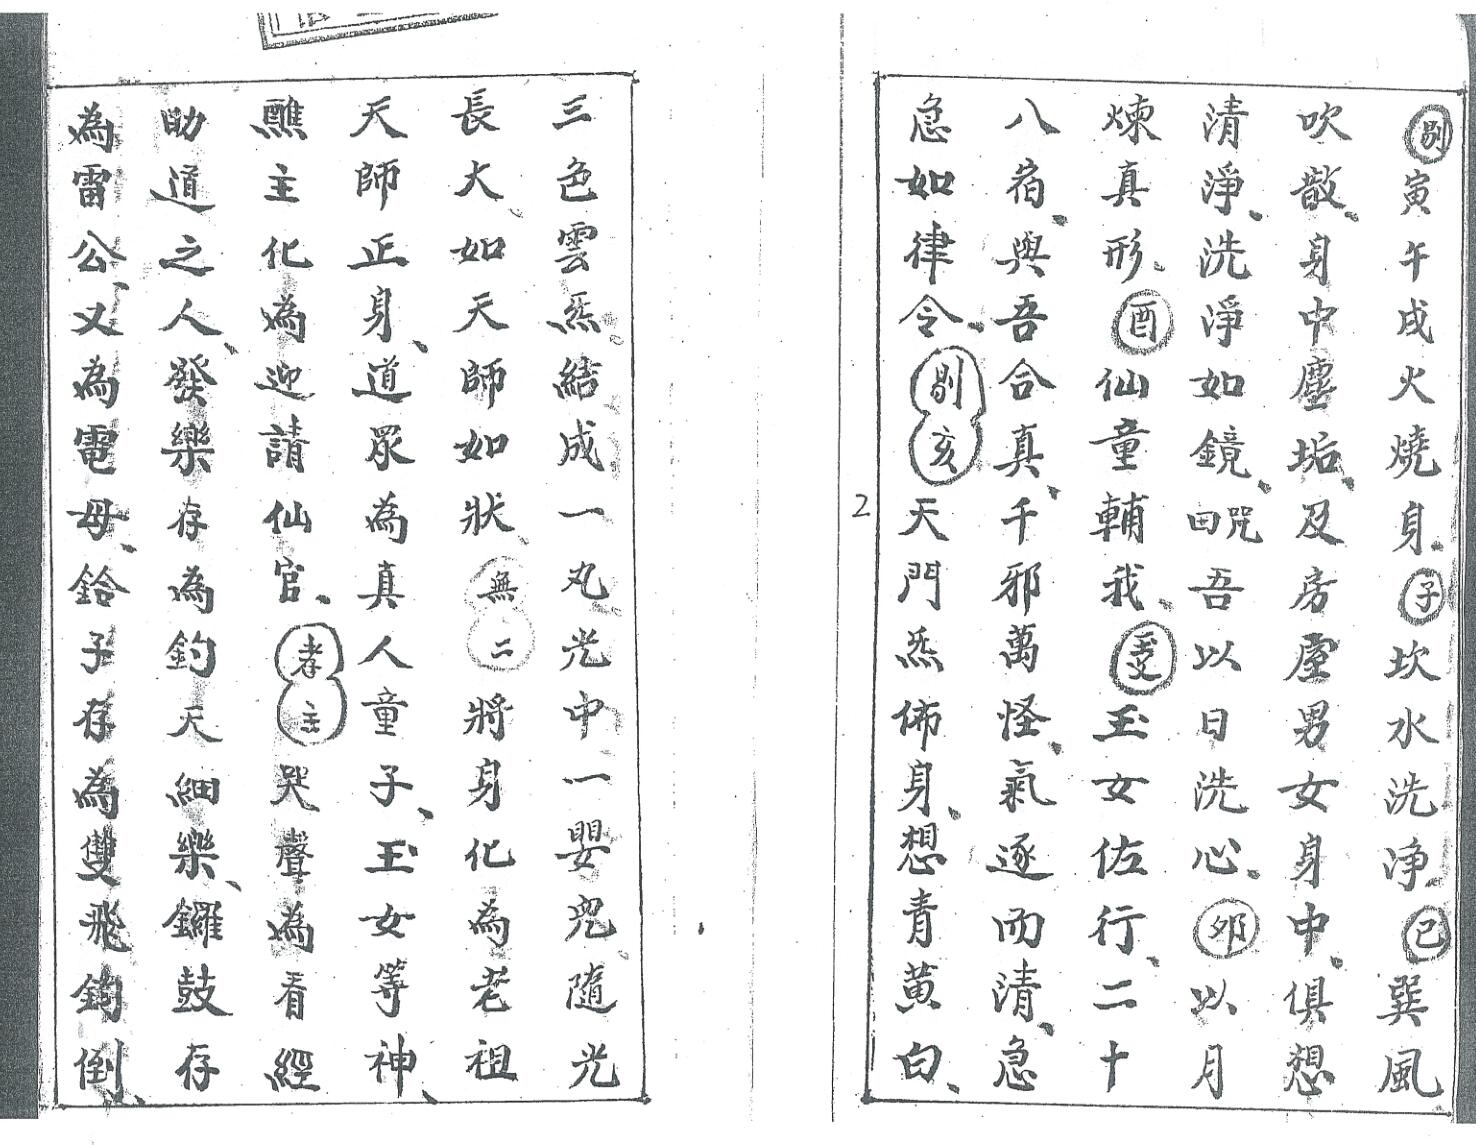 剔寅午戌火燒身、子坎水洗净、巳巽風
吹散、身中塵垢、及房屋男女身中、俱想
清淨、洗淨如鏡、咒曰吾以日洗心、卯以月
煉真形、酉仙童輔我、玉女佐行、二十
八宿、與吾合真、千邪萬怪、氣逐而清、急
急如律令、剔亥天門炁佈身、想青黃白、
2
三色雲炁結成一丸、光中一嬰兒、隨光
長大、如天師如狀、無二將身化為老祖
天師正身、道眾為真人童子、玉女等神、
醮主化為迎請仙官、孝主哭聲為看經
助道之人、發樂存為鈞天細樂、鑼鼓存
為雷公、又為電母、鈴子存為雙飛鈞倒、